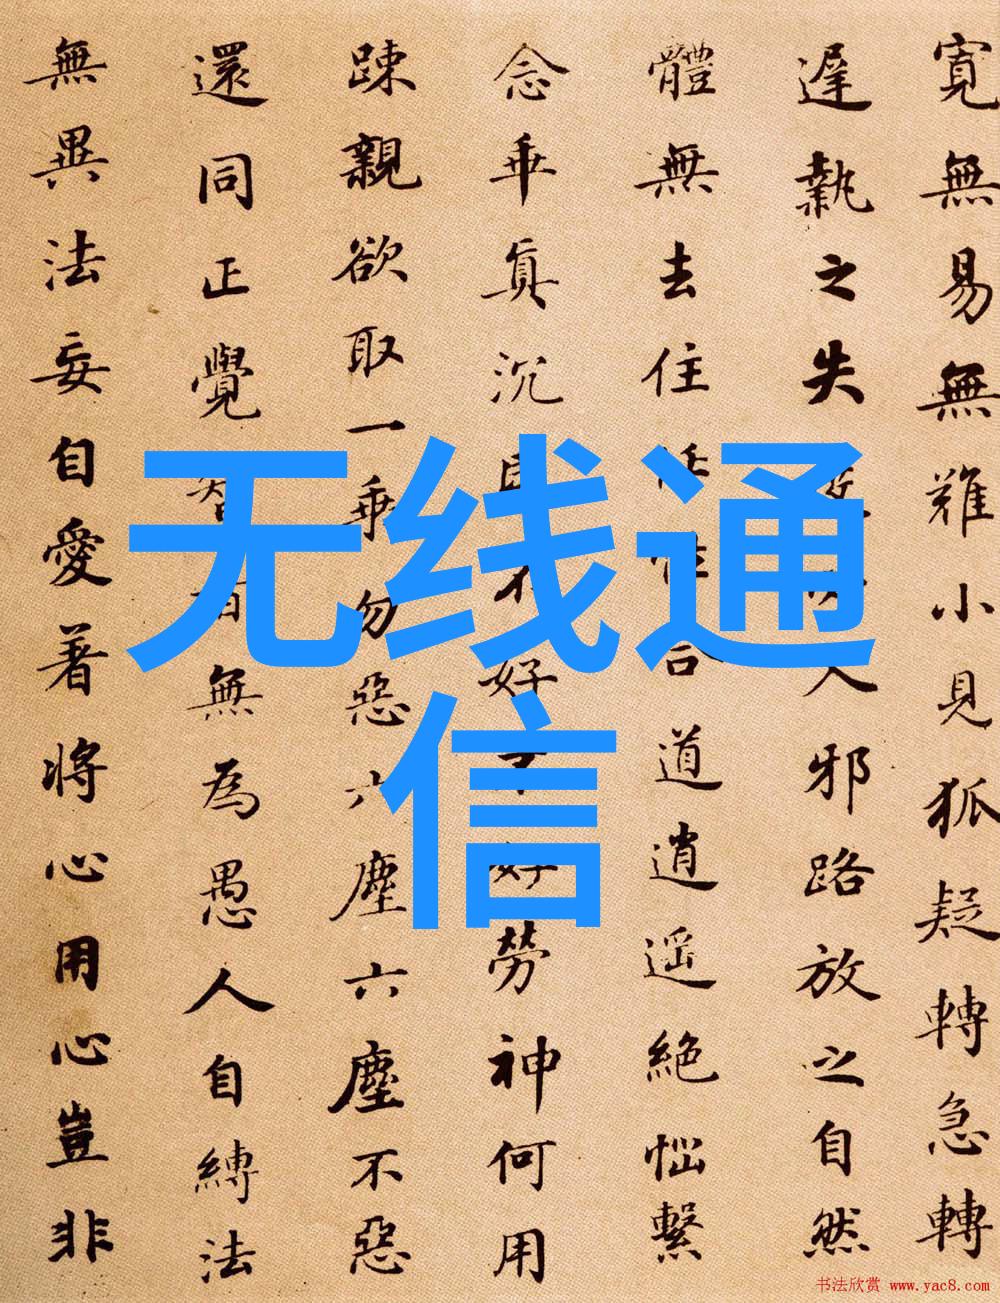 寬無易無難小見狐疑轉急轉
遲執之失 人邪路放之自然
體無去住任 合道逍遥絕惱繫
念乖真沉 好 好勞神何用
踈親欲取一乗勿惡六塵六塵不惡
還同正覺智 無為愚人自縛法
無異法妄自愛著將心用心豈非
无线通
信
书法欣赏 www.yac8.com